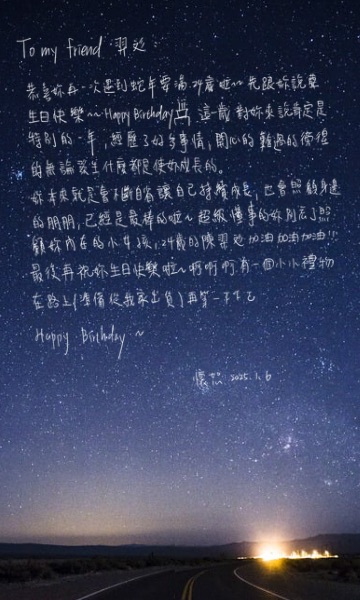 To my friend 羿廷:
恭喜妳再一次遇到蛇年要滿24歲啦~~ 我跟妳說聲
生日快樂~~ Happy Birthday 這一歲對妳來說肯定是
特別的一年,經歷了好多事情,開心的難過的徬徨
的無論發生什麼都是使妳成長的。
妳本來就是會不斷自省讓自己持續成長,也會照顧身邊
的朋朋,已經是最棒的啦~ 超級懂事的妳別忘了照
顧妳內在的小女孩,24歲的陳羿廷加油加油加油!!
最後再祝妳生日快樂啦~ 啊啊啊有一個小小禮物
在路上(準備從我家出貨)再等一下下
Happy Birthday ~
2025.1.6